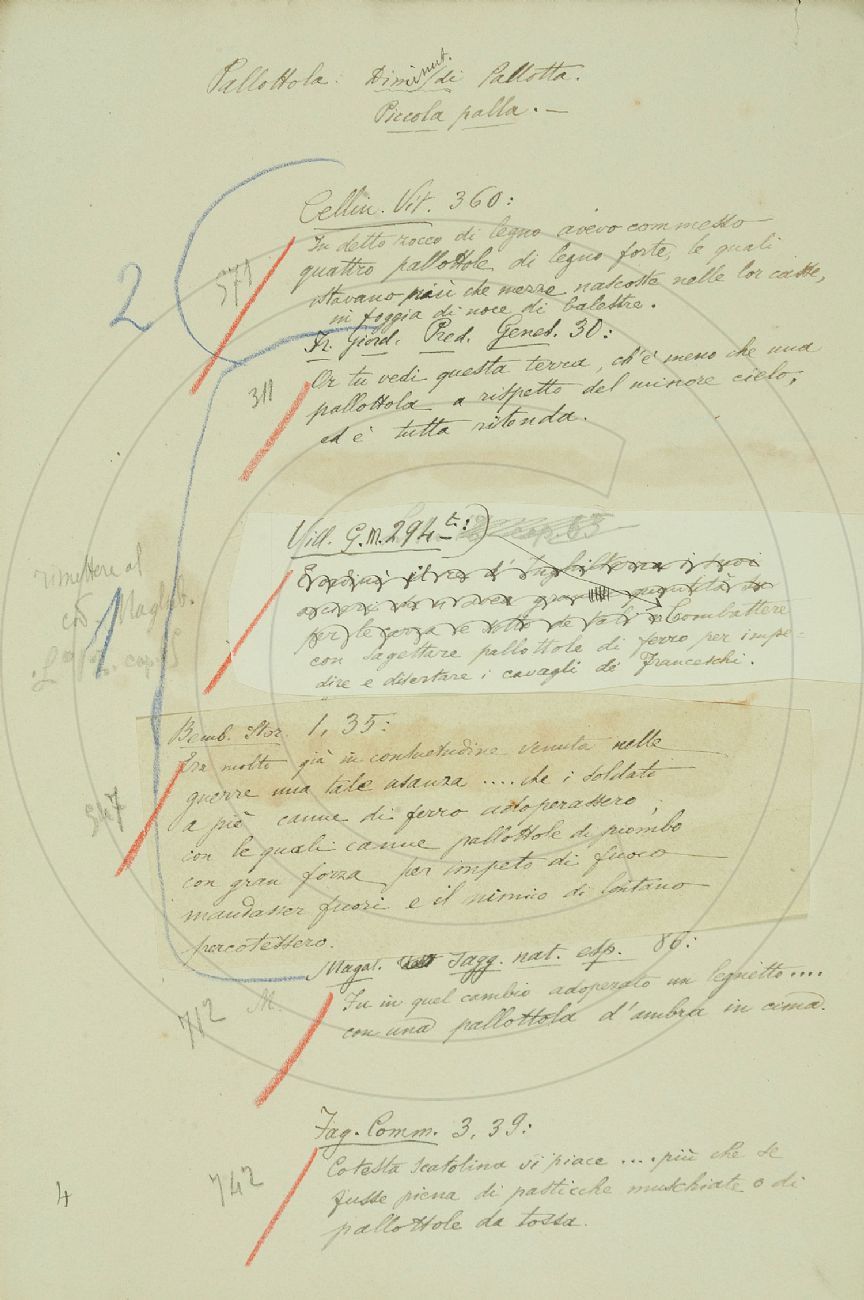 Pallottola. Diminut. di Pallotta.
Piccola palla. —
Cellin. Vit. 360:
In detto rocco di legno avevo commesso
quattro pallottole di legno forte, le quali
stavano più che mezze nascoste nelle lor casse,
in foggia di noce di balestre.
2
571
Fr. Giord. Pred. Genes. 30:
Or tu vedi questa terra, ch'è meno che una
pallottola a rispetto del minore cielo,
ed è tutta ritonda.
311
Vill. G. M. 294 t.:
cap. 65
Combattere
con sagettare pallottole di ferro per impe-
dire e disertare i cavagli de' Franceschi.
rimettere al
cod. Magliab.
cap.
1
Bemb. Stor. 1, 35:
Era molto già in consuetudine venuta nelle
guerre una tale usanza .... che i soldati
a piè canne di ferro adoperassero,
con le quali canne pallottole di piombo
con gran forza per impeto di fuoco
mandasser fuori e il nimico di lontano
percotessero.
547
Magal. Sagg. nat. esp. 86:
Fu in quel cambio adoperato un legnetto ....
con una pallottola d'ambra in cima.
712 M.
Fag. Comm. 3, 39:
Cotesta scatolina vi piace .... più che se
fusse piena di pasticche muschiate o di
pallottole da tossa.
742
4